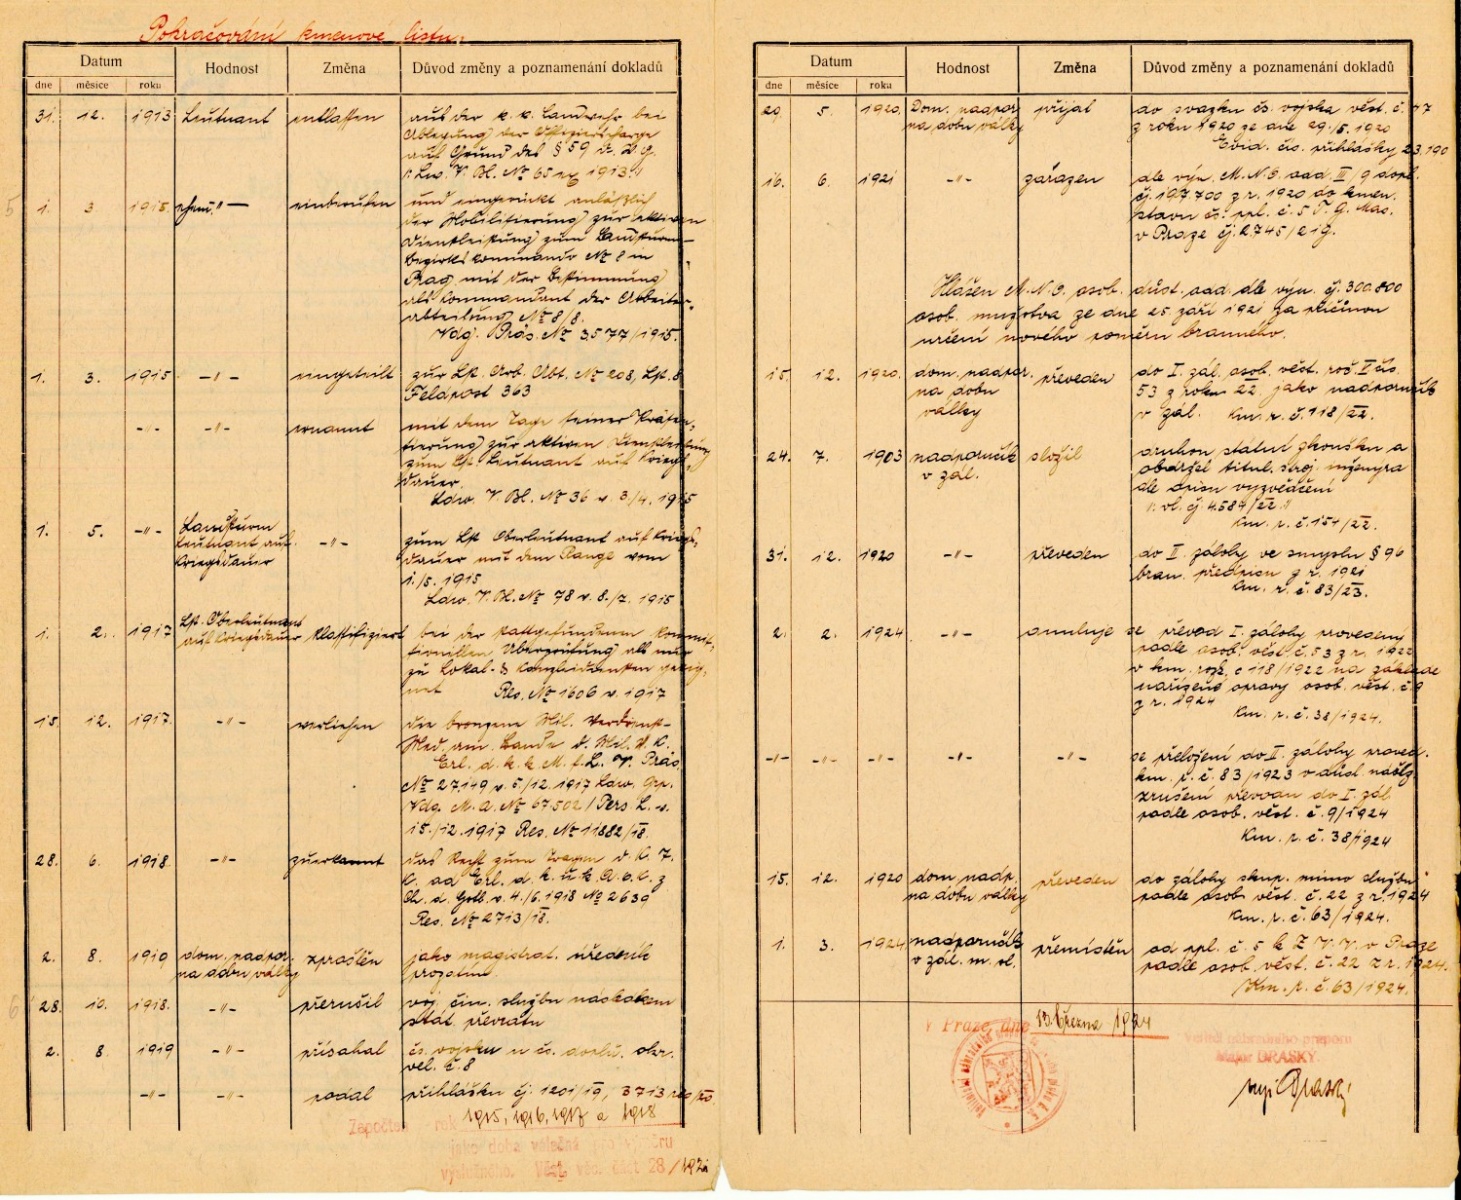 Pokračování kmenové listu.
Datum Hodnost Změna Důvod změny a poznamenání dokladů
dne měsíce roku
31. 12. 1913 Leutnant entlassen aus der k. k. Landwehr bei
Ablegung der Offizierscharge
auf Grund des § 59 d. W. g.
V. Bl. № 65 1913
5 1. 3. 1915. ehem. -"- einberufen und eingerückt anläßlich
der Mobilisierung zur aktiven
Dienstleistung zum Landsturm-
bezirkskommando № 8 in
Prag mit der Bestimmung
als Kommandant der Arbeiter-
abteilung № 8/8.
Präs. № 3577/1915.
1. 3. 1915 -"- eingeteilt zur Lst. Arb. Abt. № 208, Lst. 8
Feldpost 363
-"- -"- ernannt mit dem Tage seiner Präsen-
tierung zur aktiven Dienstleistung
zum Lst. Leutnant auf Kriegs-
dauer.
Ldw. V. Bl. № 36 v. 3./4. 1915
1. 5. -"- Landsturm
Leutnant auf
Kriegsdauer -"- zum Lst. Oberleutnant auf Kriegs-
dauer mit dem Range vom
1./5. 1915
Ldw. V. Bl. № 78 v. 8./7. 1915
1. 2. 1917 Lst. Oberleutnant
auf Kriegsdauer klassifiziert bei der stattgefundenen kommis-
sionellen Überprüfung als nur
zu Lokal- & Kanzleidiensten geeig-
net Res. № 1606 v. 1917
15. 12. 1917. -"- verliehen die bronzene Mil. Verdienst-
Med. am Bande d. Mil. V. K.
Erl. d. k. k. M. f. L. V. Präs.
№ 27.149 v. 5./12. 1917 Ldw. Grp.
M. A. № 67.502/Pers. L. v.
15./12. 1917 Res. № 11882/18.
28. 6. 1918. -"- zuerkannt das Recht zum Tragen d. K. T.
K. ad Erl. d. k. u. k.
v. 4./6. 1918 № 2639
Res. № 2713/18.
2. 8. 1919 dom. nadpor.
na dobu války zproštěn jako magistrat. úředník
pražský
6 28. 10. 1918. -"- přerušil voj. čin. službu následkem
stát. převratu
2. 8. 1919 -"- přísahal čs. vojsku u čs. dopl. okr.
vel. č. 8
-"- -"- podal přihlášku čj. 1201/19, 3713
Započten rok 1915, 1916, 1917 a 1918
jako doba válečná pro výměru
výslužného. Věst. věc. část 28/1921
Datum Hodnost Změna Důvod změny a poznamenání dokladů
dne měsíce roku
29. 5. 1920. Dom. nadpor.
na dobu války přijat do svazku čs. vojska věst. č. 77
z roku 1920 ze dne 29./5. 1920
Evid. čís. přihlášky 23.190
16. 6. 1921 -"- zařazen dle výn. M.N.O. odd. III/9 dopl.
čj. 197.700 z r. 1920 do kmen.
stavu čs. ppl. č. 5 T. G. Mas.
v Praze čj. 2745/21g.
Hlášen M.N.O. osob. důst. odd. dle výn. čj. 300.800
osob. mužstva ze dne 25. září 1921 za příčinou
určení nového poměru branného.
15. 12. 1920. dom. nadpor.
na dobu
války převeden do I. zál. osob. věst. roč. I čís.
53 z roku 22 jako nadporučík
v zál. Km. r. č. 118/22.
24. 7. 1903 nadporučík
v zál. složil druhou státní zkoušku a
obdržel titul. stroj. inženýra
dle opisu vysvědčení
vl. čj. 4.587/22.
Km. r. č. 151/22.
31. 12. 1920 -"- převeden do II. zálohy ve smyslu § 96
bran. předpisu z r. 1921
Km. r. č. 83/23.
2. 2. 1924 -"- anuluje se převod I. zálohy provedený
podle osob. věst. č. 53 z r. 1922
v km. rozk. č. 118/1922 na základě
nařízené opravy osob. věst. č. 9
z r. 1924
Km. r. č. 38/1924.
-"- -"- -"- -"- -"- se přeložení do II. zálohy proved.
km. r. č. 83/1923 v důsl. násl.
zrušení převodu do I. zál.
podle osob. věst. č. 9/1924
Km. r. č. 38/1924
15. 12. 1920 dom. nadp.
na dobu války převeden do zálohy skup. mimo službu
podle osob. věst. č. 22 z r. 1924
Km. r. č. 63/1924.
1. 3. 1924. nadporučík
v zál. m. sl. přemístěn od ppl. č. 5 k Z. V. V. v Praze
podle osob. věst. č. 22 z r. 1924.
Km. r. č. 63/1924.
V Praze, dne 13. března 1924
Velitel náhradního praporu
Major DRASKÝ.